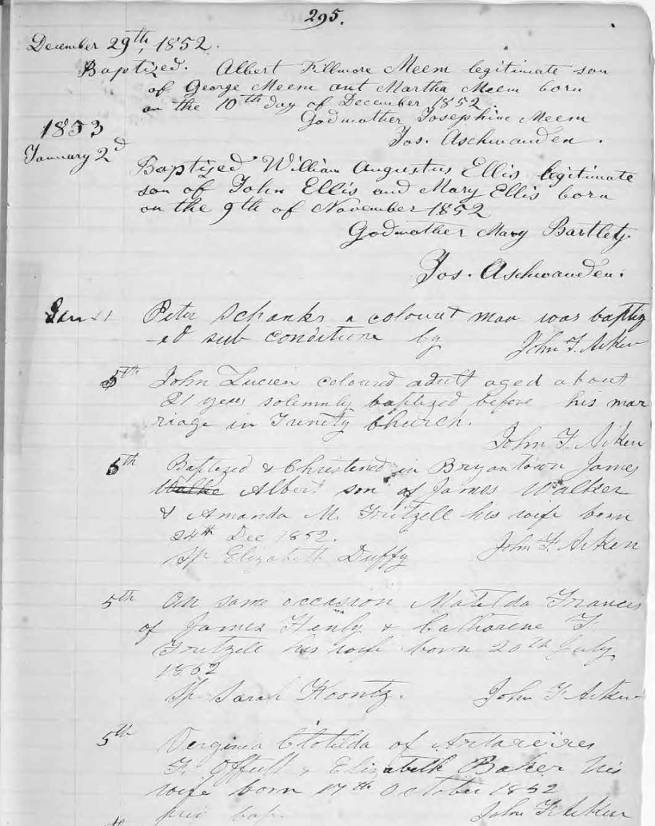 295.
December 29th, 1852.
Baptized. Albert Fillmore Meem legitimate son
of George Meem ant Martha Meem born
on the 10th day of December 1852.
Godmother Josephine Meem
Jos. Aschwanden.
1853
January 2d
Baptized William Augustus Ellis legitimate
son of John Ellis and Mary Ellis born
on the 9th of November 1852
Godmother Mary Bartlett.
Jos. Aschwanden.
Jan
Peter Schanks a colourd man was baptiz
-ed sub conditione by John F. Aiken
5th John Lucien coloured adult aged about
21 years solemnly baptized before his mar
riage in Trinity Church.
John F. Aiken
5th Baptized & Christened in Bryantown James
Albert son of James Walker
& Amanda M. his wife born
24th Dec 1852.
Sp Elizabeth Duffy John F. Aiken
5th On same occasion Matilda Frances
of James & Catharene F.
his wife born 20th July
1852
Sp Sarah Koontz. John F Aiken
5th Verginia Clotilda of
F. Offutt & Elizabeth Baker his
wife born 17th October 1852
priv bap. John F Aiken